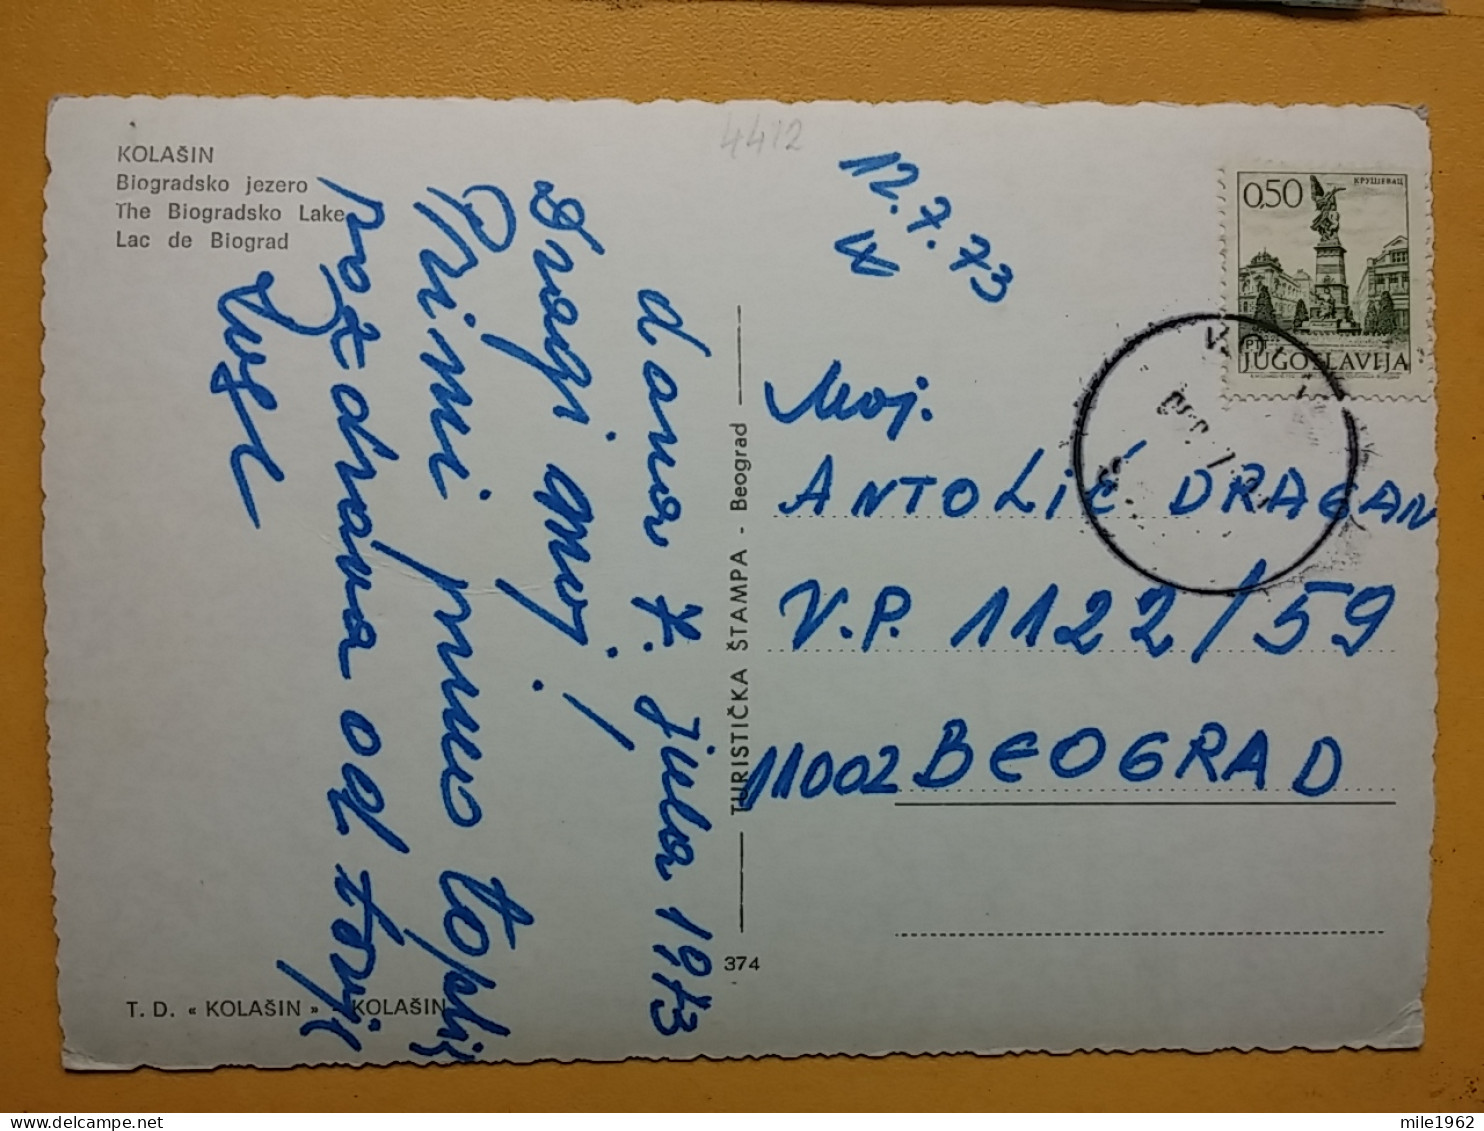 KOLAŠIN
Biogradsko jezero
The Biogradsko Lake
Lac de Biograd
4412
12.7.73
0,50
КРУШЕВАЦ
PTT
JUGOSLAVIJA
dana 7. jula 1973
Dragi moj!
Primi puno toplih
pozdrava od tvoje
Moj.
ANTOLIĆ DRAGAN
V.P. 1122/59
11002 BEOGRAD
TURISTIČKA ŠTAMPA - Beograd
374
T. D. « KOLAŠIN » KOLAŠIN
mile1962